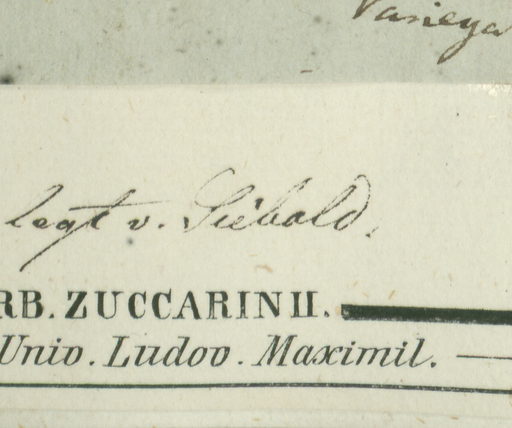 Legt v. Siebold.
RB. ZUCCARINII.
Univ. Ludov. Maximil.